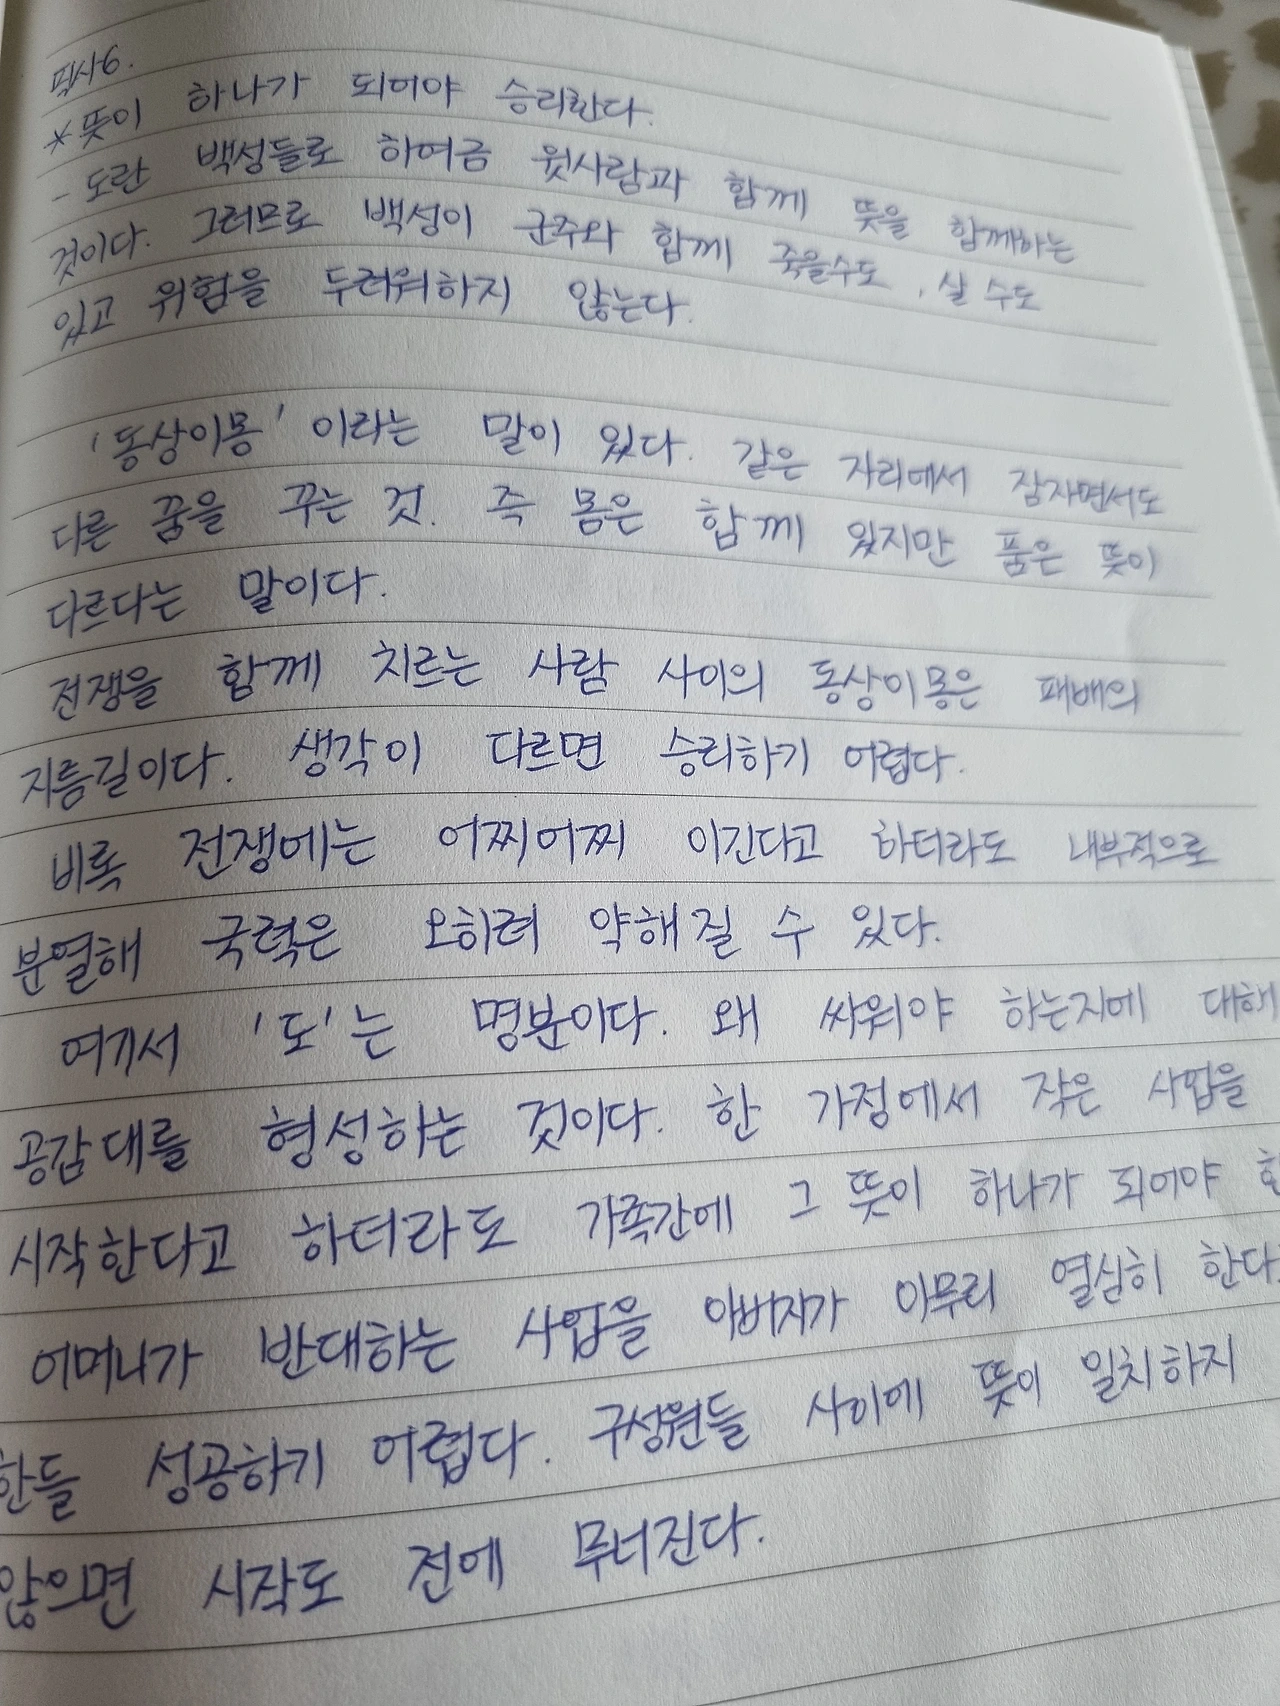 필사6.
* 뜻이 하나가 되어야 승리한다.
- 도란 백성들로 하여금 윗사람과 함께 뜻을 함께하는
것이다. 그러므로 백성이 군주와 함께 죽을수도, 살 수도
있고 위험을 두려워하지 않는다.
'동상이몽' 이라는 말이 있다. 같은 자리에서 잠자면서도
다른 꿈을 꾸는 것. 즉 몸은 함께 있지만 품은 뜻이
다르다는 말이다.
전쟁을 함께 치르는 사람 사이의 동상이몽은 패배의
지름길이다. 생각이 다르면 승리하기 어렵다.
비록 전쟁에는 어찌어찌 이긴다고 하더라도 내부적으로
분열해 국력은 오히려 약해질 수 있다.
여기서 '도'는 명분이다. 왜 싸워야 하는지에 대해
공감대를 형성하는 것이다. 한 가정에서 작은 사업을
시작한다고 하더라도 가족간에 그 뜻이 하나가 되어야
어머니가 반대하는 사업을 아버지가 아무리 열심히 한다
한들 성공하기 어렵다. 구성원들 사이에 뜻이 일치하지
않으면 시작도 전에 무너진다.